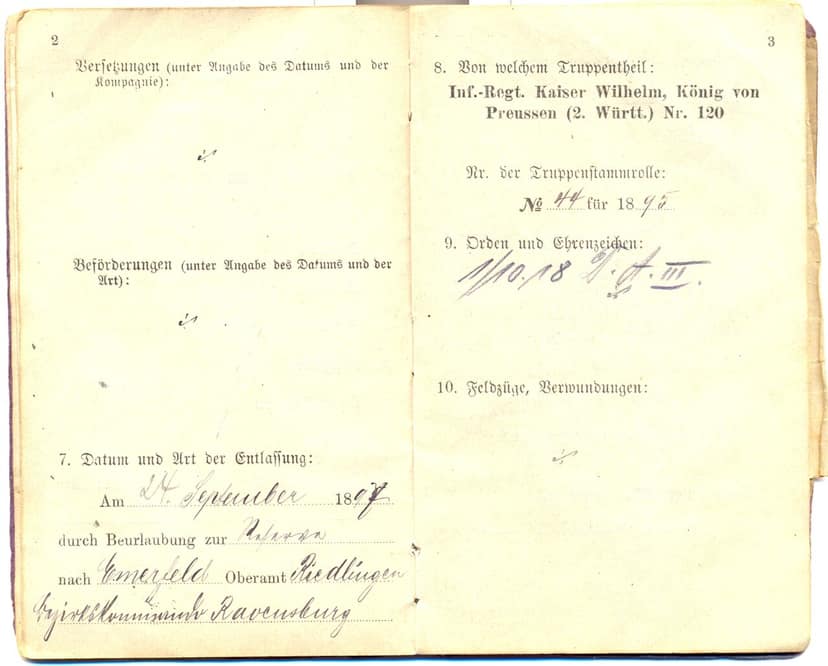 2
Versetzungen (unter Angabe des Datums und der
Kompagnie):
Beförderungen (unter Angabe des Datums und der
Art):
7. Datum und Art der Entlassung:
Am 24. September 1897
durch Beurlaubung zur Reserve
nach Emerfeld Oberamt Riedlingen
Bezirkskommando Ravensburg
3
8. Von welchem Truppentheil:
Inf.-Regt. Kaiser Wilhelm, König von
Preussen (2. Württ.) Nr. 120
Nr. der Truppenstammrolle:
№ 44 für 1895
9. Orden und Ehrenzeichen:
1/10.18 D. A. III.
10. Feldzüge, Verwundungen: